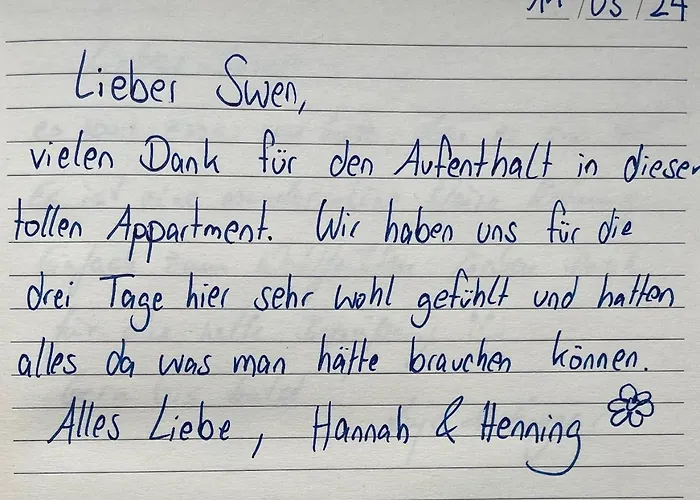 /03/24
Lieber Swen,
vielen Dank für den Aufenthalt in dieser
tollen Appartment. Wir haben uns für die
drei Tage hier sehr wohl gefühlt und hatten
alles da was man hätte brauchen können.
Alles Liebe, Hannah & Henning